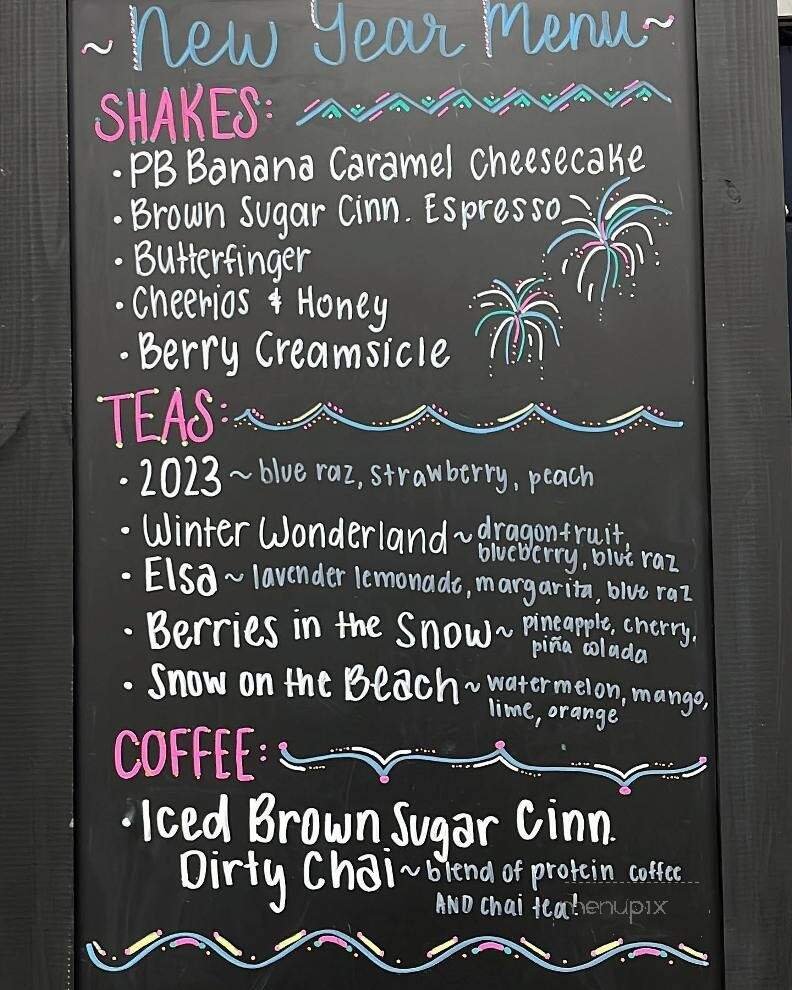 ~ New Year Menu ~
SHAKES:
· PB Banana Caramel Cheesecake
· Brown Sugar Cinn. Espresso
· Butterfinger
· Cheerios & Honey
· Berry Creamsicle
TEAS:
· 2023 ~ blue raz, strawberry, peach
· Winter Wonderland ~ dragonfruit,
blueberry, blue raz
· Elsa ~ lavender lemonade, margarita, blue raz
· Berries in the Snow ~ pineapple, cherry,
piña colada
· Snow on the Beach ~ watermelon, mango,
lime, orange
COFFEE:
· Iced Brown Sugar Cinn.
Dirty Chai ~ blend of protein coffee
AND chai tea!
menupix